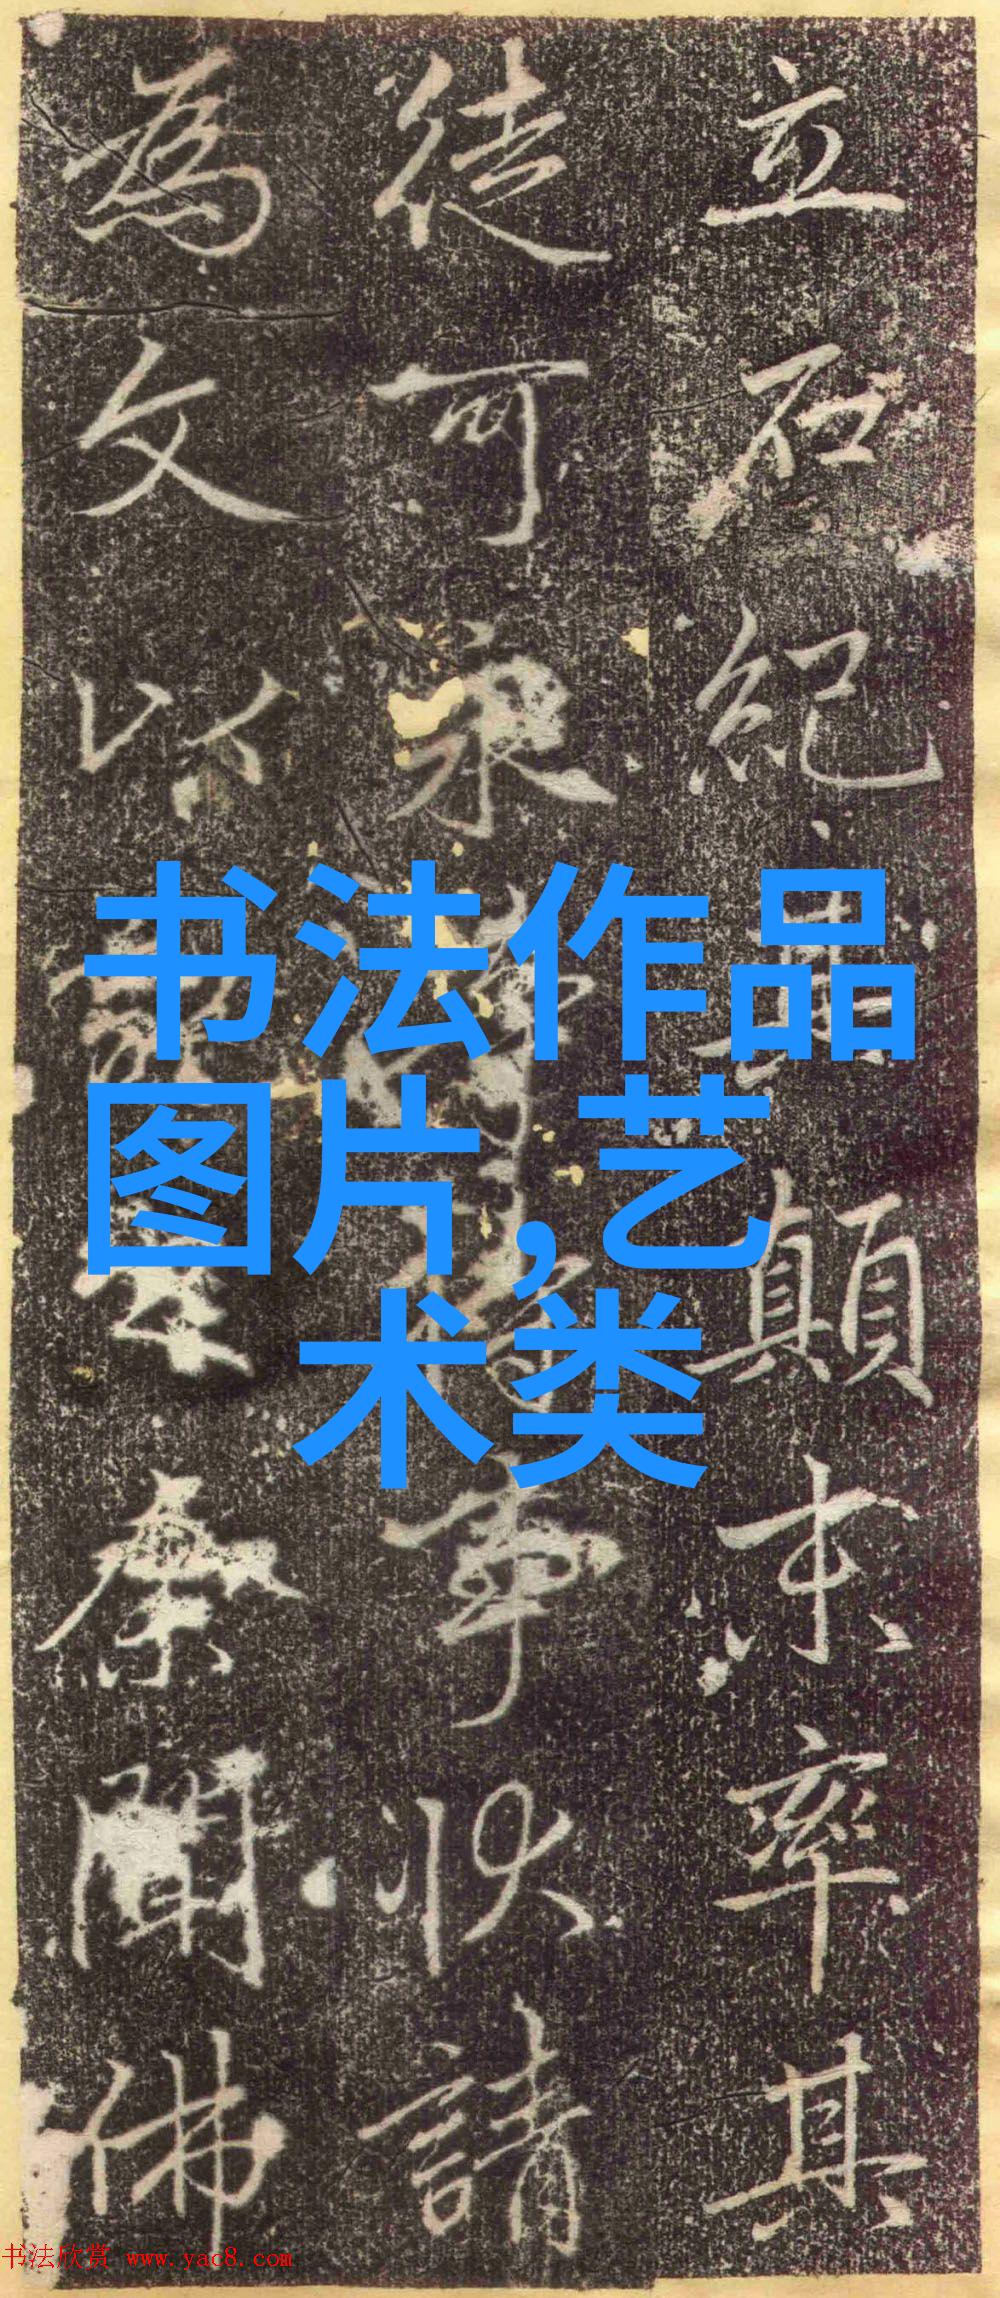 立石紀其顛末率其
徒可事狀請
為文以聞佛
书法作品
图片,艺
术类
书法欣赏 www.yac8.com